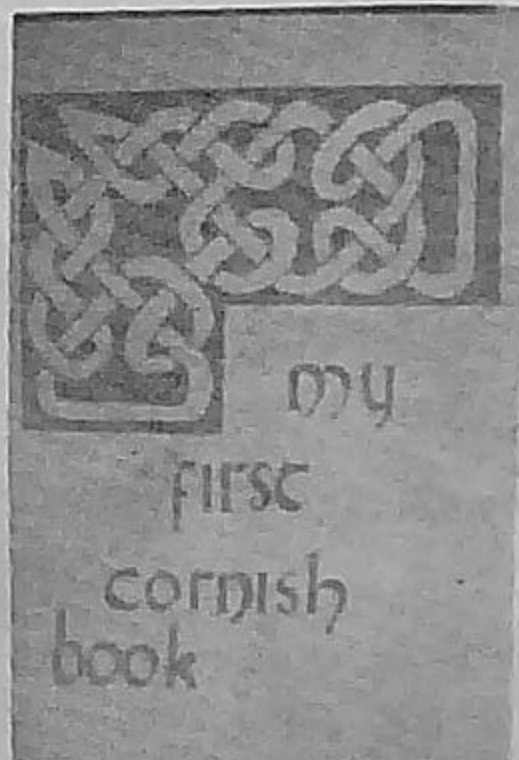 my
first
cornish
book